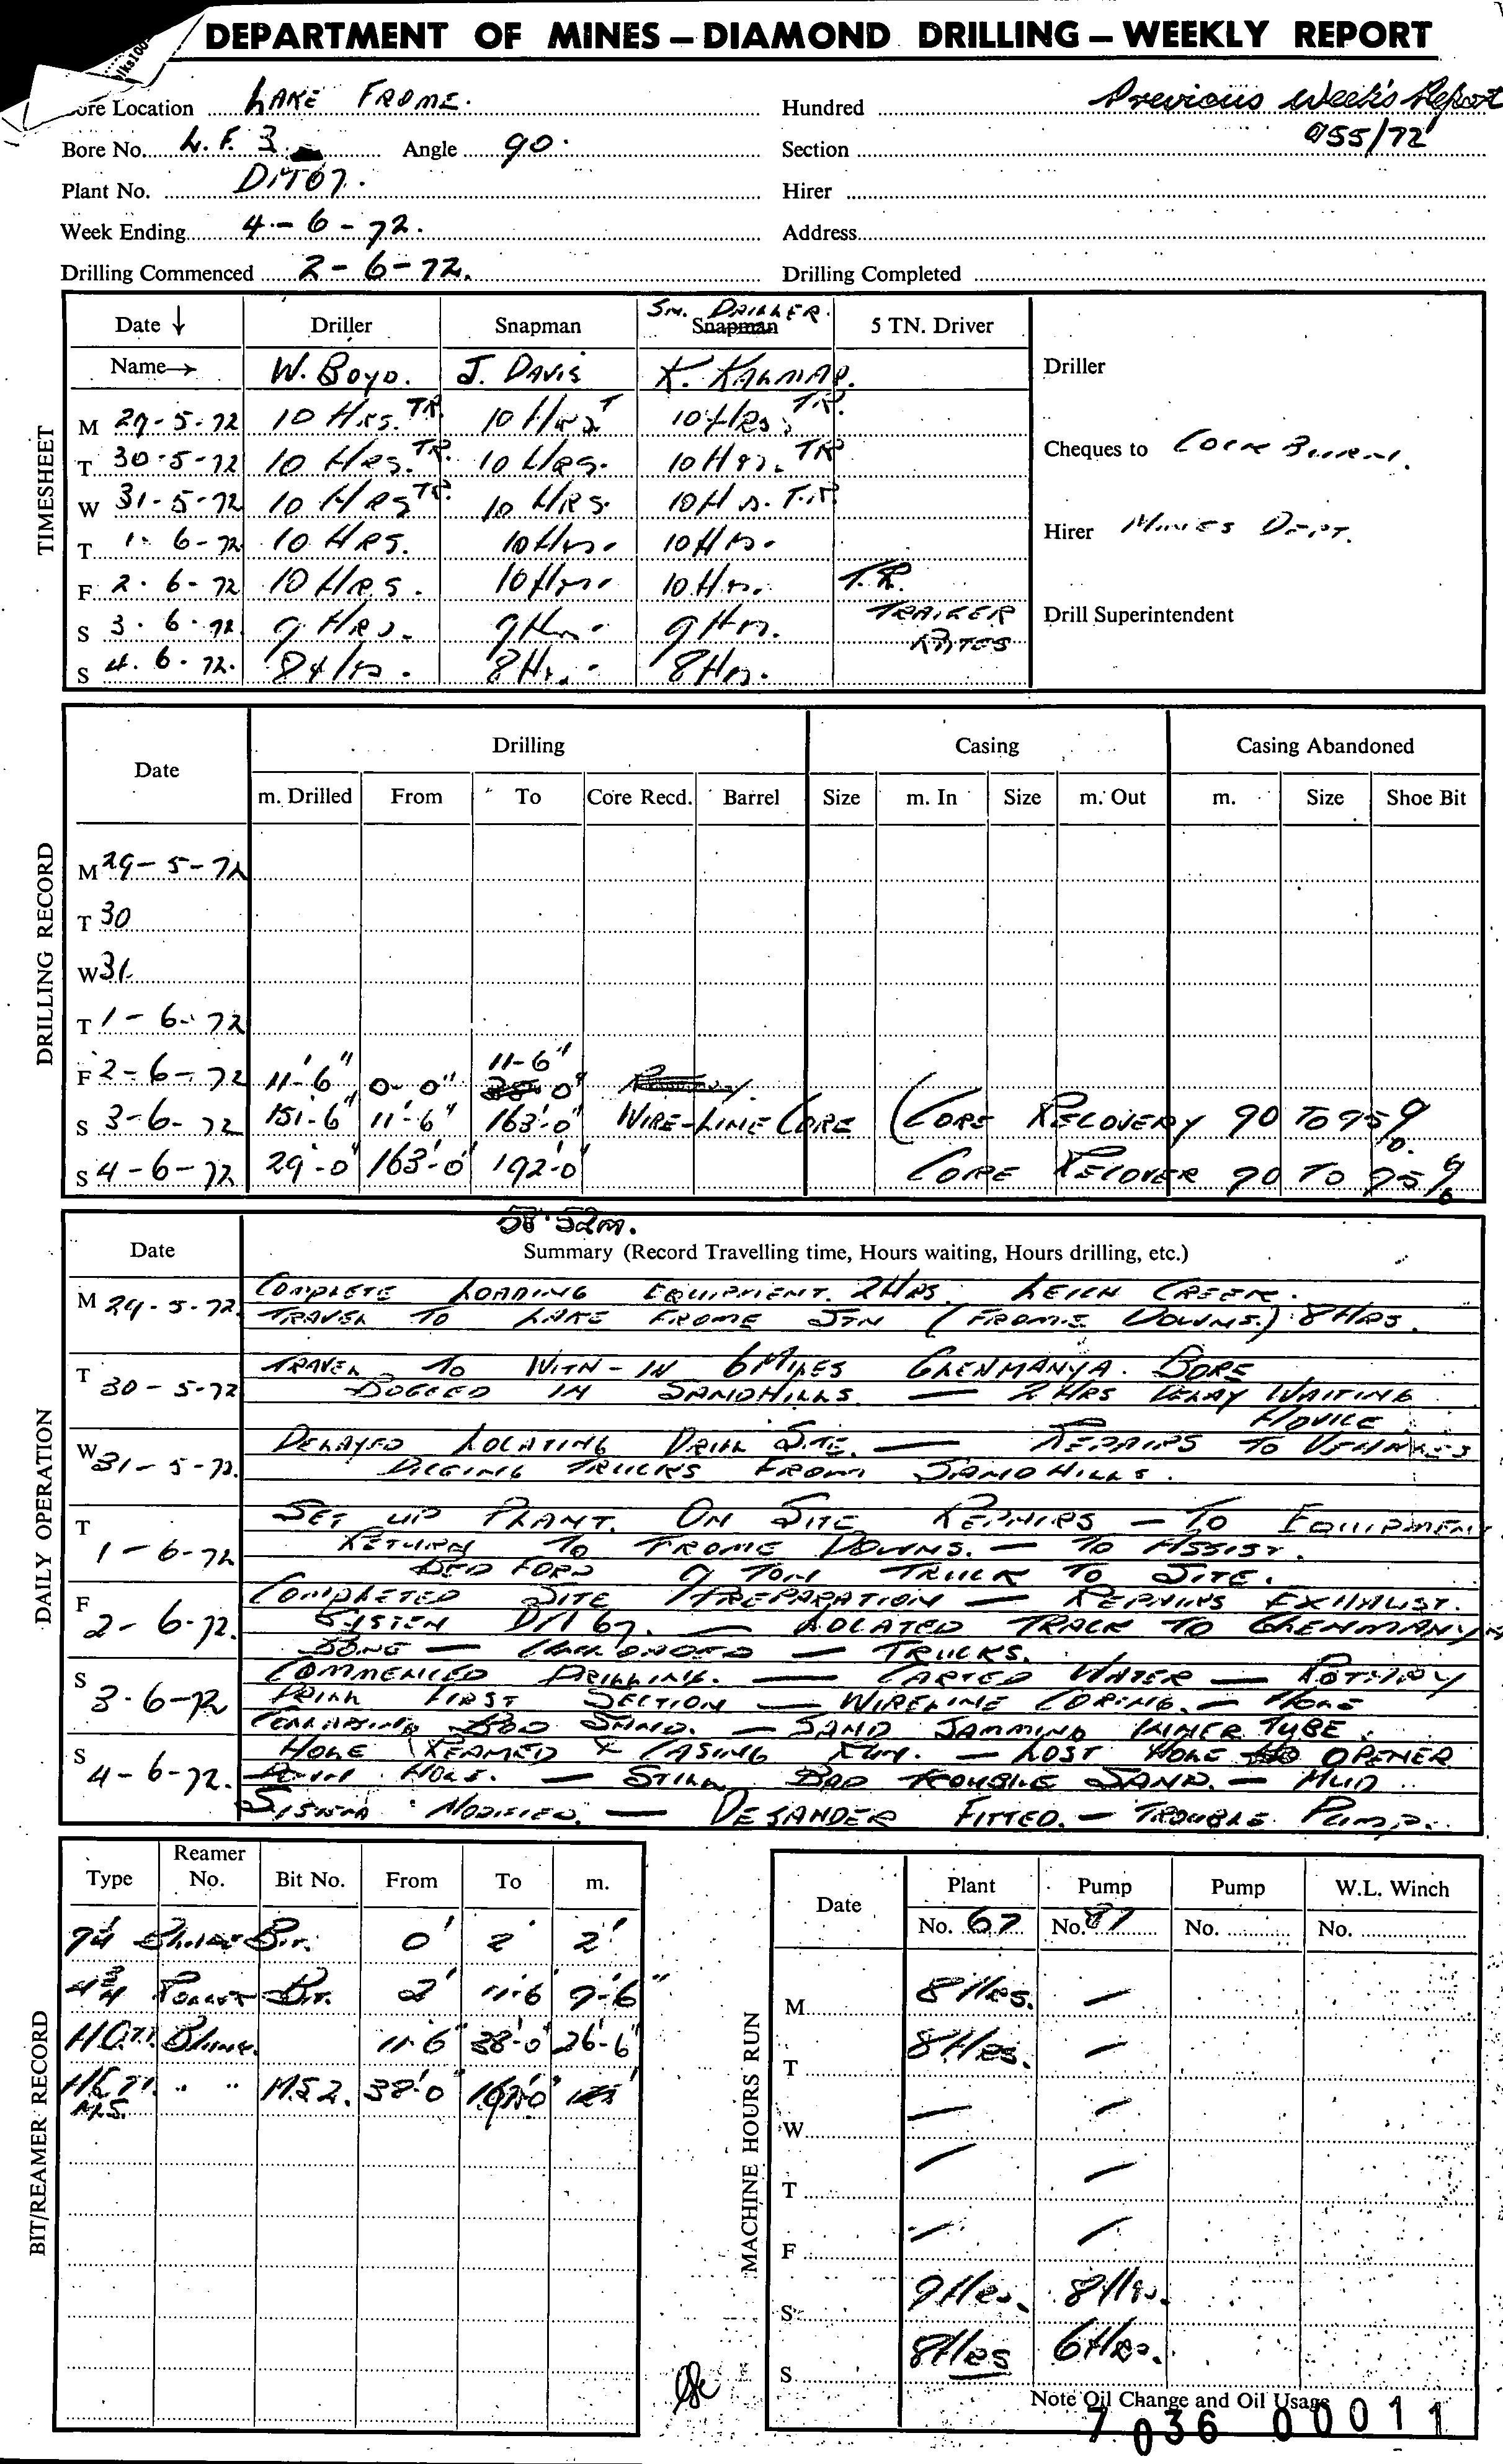 DEPARTMENT OF MINES – DIAMOND DRILLING – WEEKLY REPORT
Bore Location LAKE FROME. Hundred Previous Week's Report
Bore No. L.F. 3 Angle 90. Section 955/72
Plant No. DIT67. Hirer
Week Ending 4-6-72. Address
Drilling Commenced 2-6-72. Drilling Completed
TIMESHEET
Date ↓ Driller Snapman SN. DRILLER. Snapman 5 TN. Driver
Name→ W. BOYD. J. DAVIS K. Driller
M 29-5-72 10 HRS. TR. 10 HRS T 10 HRS. TR.
T 30-5-72 10 HRS. TR. 10 HRS. 10 Hrs. TR Cheques to COCKBURN.
W 31-5-72 10 HRS TR. 10 HRS. 10 Hrs. T.R.
T 1-6-72 10 HRS. 10 Hrs. 10 Hrs. Hirer MINES DEPT.
F 2-6-72 10 HRS. 10 Hrs. 10 Hrs. T.R.
S 3-6-72 9 HRS. 9 Hrs. 9 Hrs. TRAILER RATES Drill Superintendent
S 4-6-72. 8 Hrs. 8 Hrs. 8 Hrs.
DRILLING RECORD
Date Drilling Casing Casing Abandoned
m. Drilled From To Core Recd. Barrel Size m. In Size m. Out m. Size Shoe Bit
M 29-5-72
T 30
W 31
T 1-6-72
F 2-6-72 11'-6" 0-0" 11-6"
S 3-6-72 151'-6" 11'-6" 163'-0" WIRE-LINE CORE (CORE RECOVERY 90 TO 95%
S 4-6-72 29'-0" 163'-0" 192'-0" CORE RECOVER 90 TO 95%
58.52m.
DAILY OPERATION
Date Summary (Record Travelling time, Hours waiting, Hours drilling, etc.)
M 29-5-72. COMPLETE LOADING EQUIPMENT. 2HRS. LEIGH CREEK.
TRAVEL TO LAKE FROME STN (FROME DOWNS.) 8HRS.
T 30-5-72 TRAVEL TO WITH-IN 6 MILES GLENMANYA. BORE
BOGGED IN SANDHILLS — 2 HRS DELAY WAITING
ADVICE
W 31-5-72. DELAYED LOCATING DRILL SITE. — REPAIRS TO VEHICLES
DIGGING TRUCKS FROM SANDHILLS.
T 1-6-72 SET UP PLANT. ON SITE REPAIRS — TO EQUIPMENT
RETURN TO FROME DOWNS. — TO ASSIST.
BEDFORD 9 TON TRUCK TO SITE.
F 2-6-72. COMPLETED SITE PREPARATION — REPAIRS EXHAUST.
SYSTEM DIT67. — LOCATED TRACK TO GLENMANYA
— TRUCKS.
S 3-6-72 COMMENCED DRILLING. — CARTED WATER — ROTARY
DRILL FIRST SECTION — WIRELINE CORING. — HOLE
COLLAPSING BAD SAND. — SAND JAMMING INNER TUBE.
S 4-6-72. HOLE REAMED & CASING RUN. — LOST HOLE OPENER
DOWN HOLE. — STILL BAD TROUBLE SAND. — MUD
SYSTEM MODIFIED. — DESANDER FITTED. — TROUBLE PUMP.
BIT/REAMER RECORD
Type Reamer No. Bit No. From To m.
Bit. 0' 2' 2'
4¾ Roller Bit. 2' 11-6 9'-6"
11-6" 38'-0" 26'-6"
" " M.S 2. 38'-0"
M.S.
MACHINE HOURS RUN
Date Plant Pump Pump W.L. Winch
No. 67 No. 87 No. No.
M 8 Hrs. —
T 8 Hrs. —
W — —
T — —
F — —
S 9 Hrs. 8 Hrs.
S 8 Hrs 6 Hrs.
Note Oil Change and Oil Usage
7 036 00011